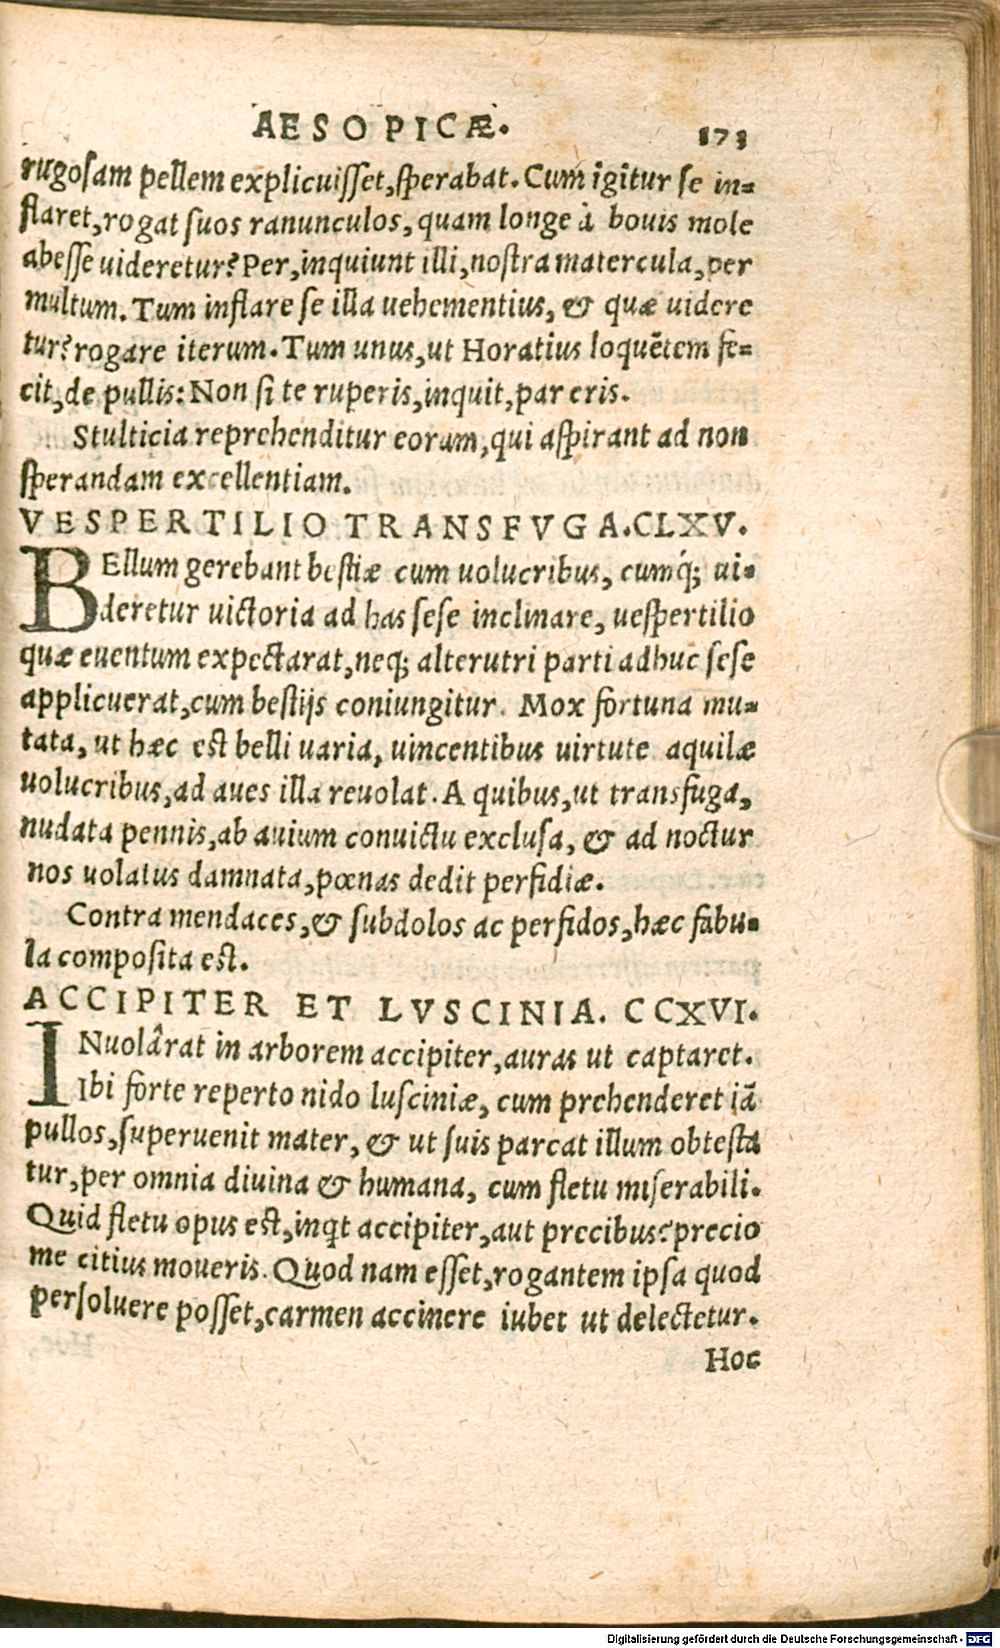 AESOPICÆ. 173
rugosam pellem explicuisset, sperabat. Cum igitur se in-
flaret, rogat suos ranunculos, quam longe à bouis mole
abesse uideretur? Per, inquiunt illi, nostra matercula, per
multum. Tum inflare se illa uehementius, & quæ uidere
tur? rogare iterum. Tum unus, ut Horatius loquētem fe-
cit, de pullis: Non si te ruperis, inquit, par eris.
Stulticia reprehenditur eorum, qui aspirant ad non
sperandam excellentiam.
VESPERTILIO TRANSFVGA. CLXV.
BEllum gerebant bestiæ cum uolucribus, cumq́; ui-
deretur uictoria ad has sese inclinare, uespertilio
quæ euentum expectarat, neq; alterutri parti adhuc sese
applicuerat, cum bestijs coniungitur. Mox fortuna mu-
tata, ut hæc est belli uaria, uincentibus uirtute aquilæ
uolucribus, ad aues illa reuolat. A quibus, ut transfuga,
nudata pennis, ab auium conuictu exclusa, & ad noctur
nos uolatus damnata, pœnas dedit perfidiæ.
Contra mendaces, & subdolos ac perfidos, hæc fabu-
la composita est.
ACCIPITER ET LVSCINIA. CCXVI.
INuolârat in arborem accipiter, auras ut captaret.
Ibi forte reperto nido lusciniæ, cum prehenderet iā
pullos, superuenit mater, & ut suis parcat illum obtesta
tur, per omnia diuina & humana, cum fletu miserabili.
Quid fletu opus est, inqt accipiter, aut precibus? precio
me citius moueris. Quod nam esset, rogantem ipsa quod
persoluere posset, carmen accinere iubet ut delectetur.
Hoc
Digitalisierung gefördert durch die Deutsche Forschungsgemeinschaft - DFG